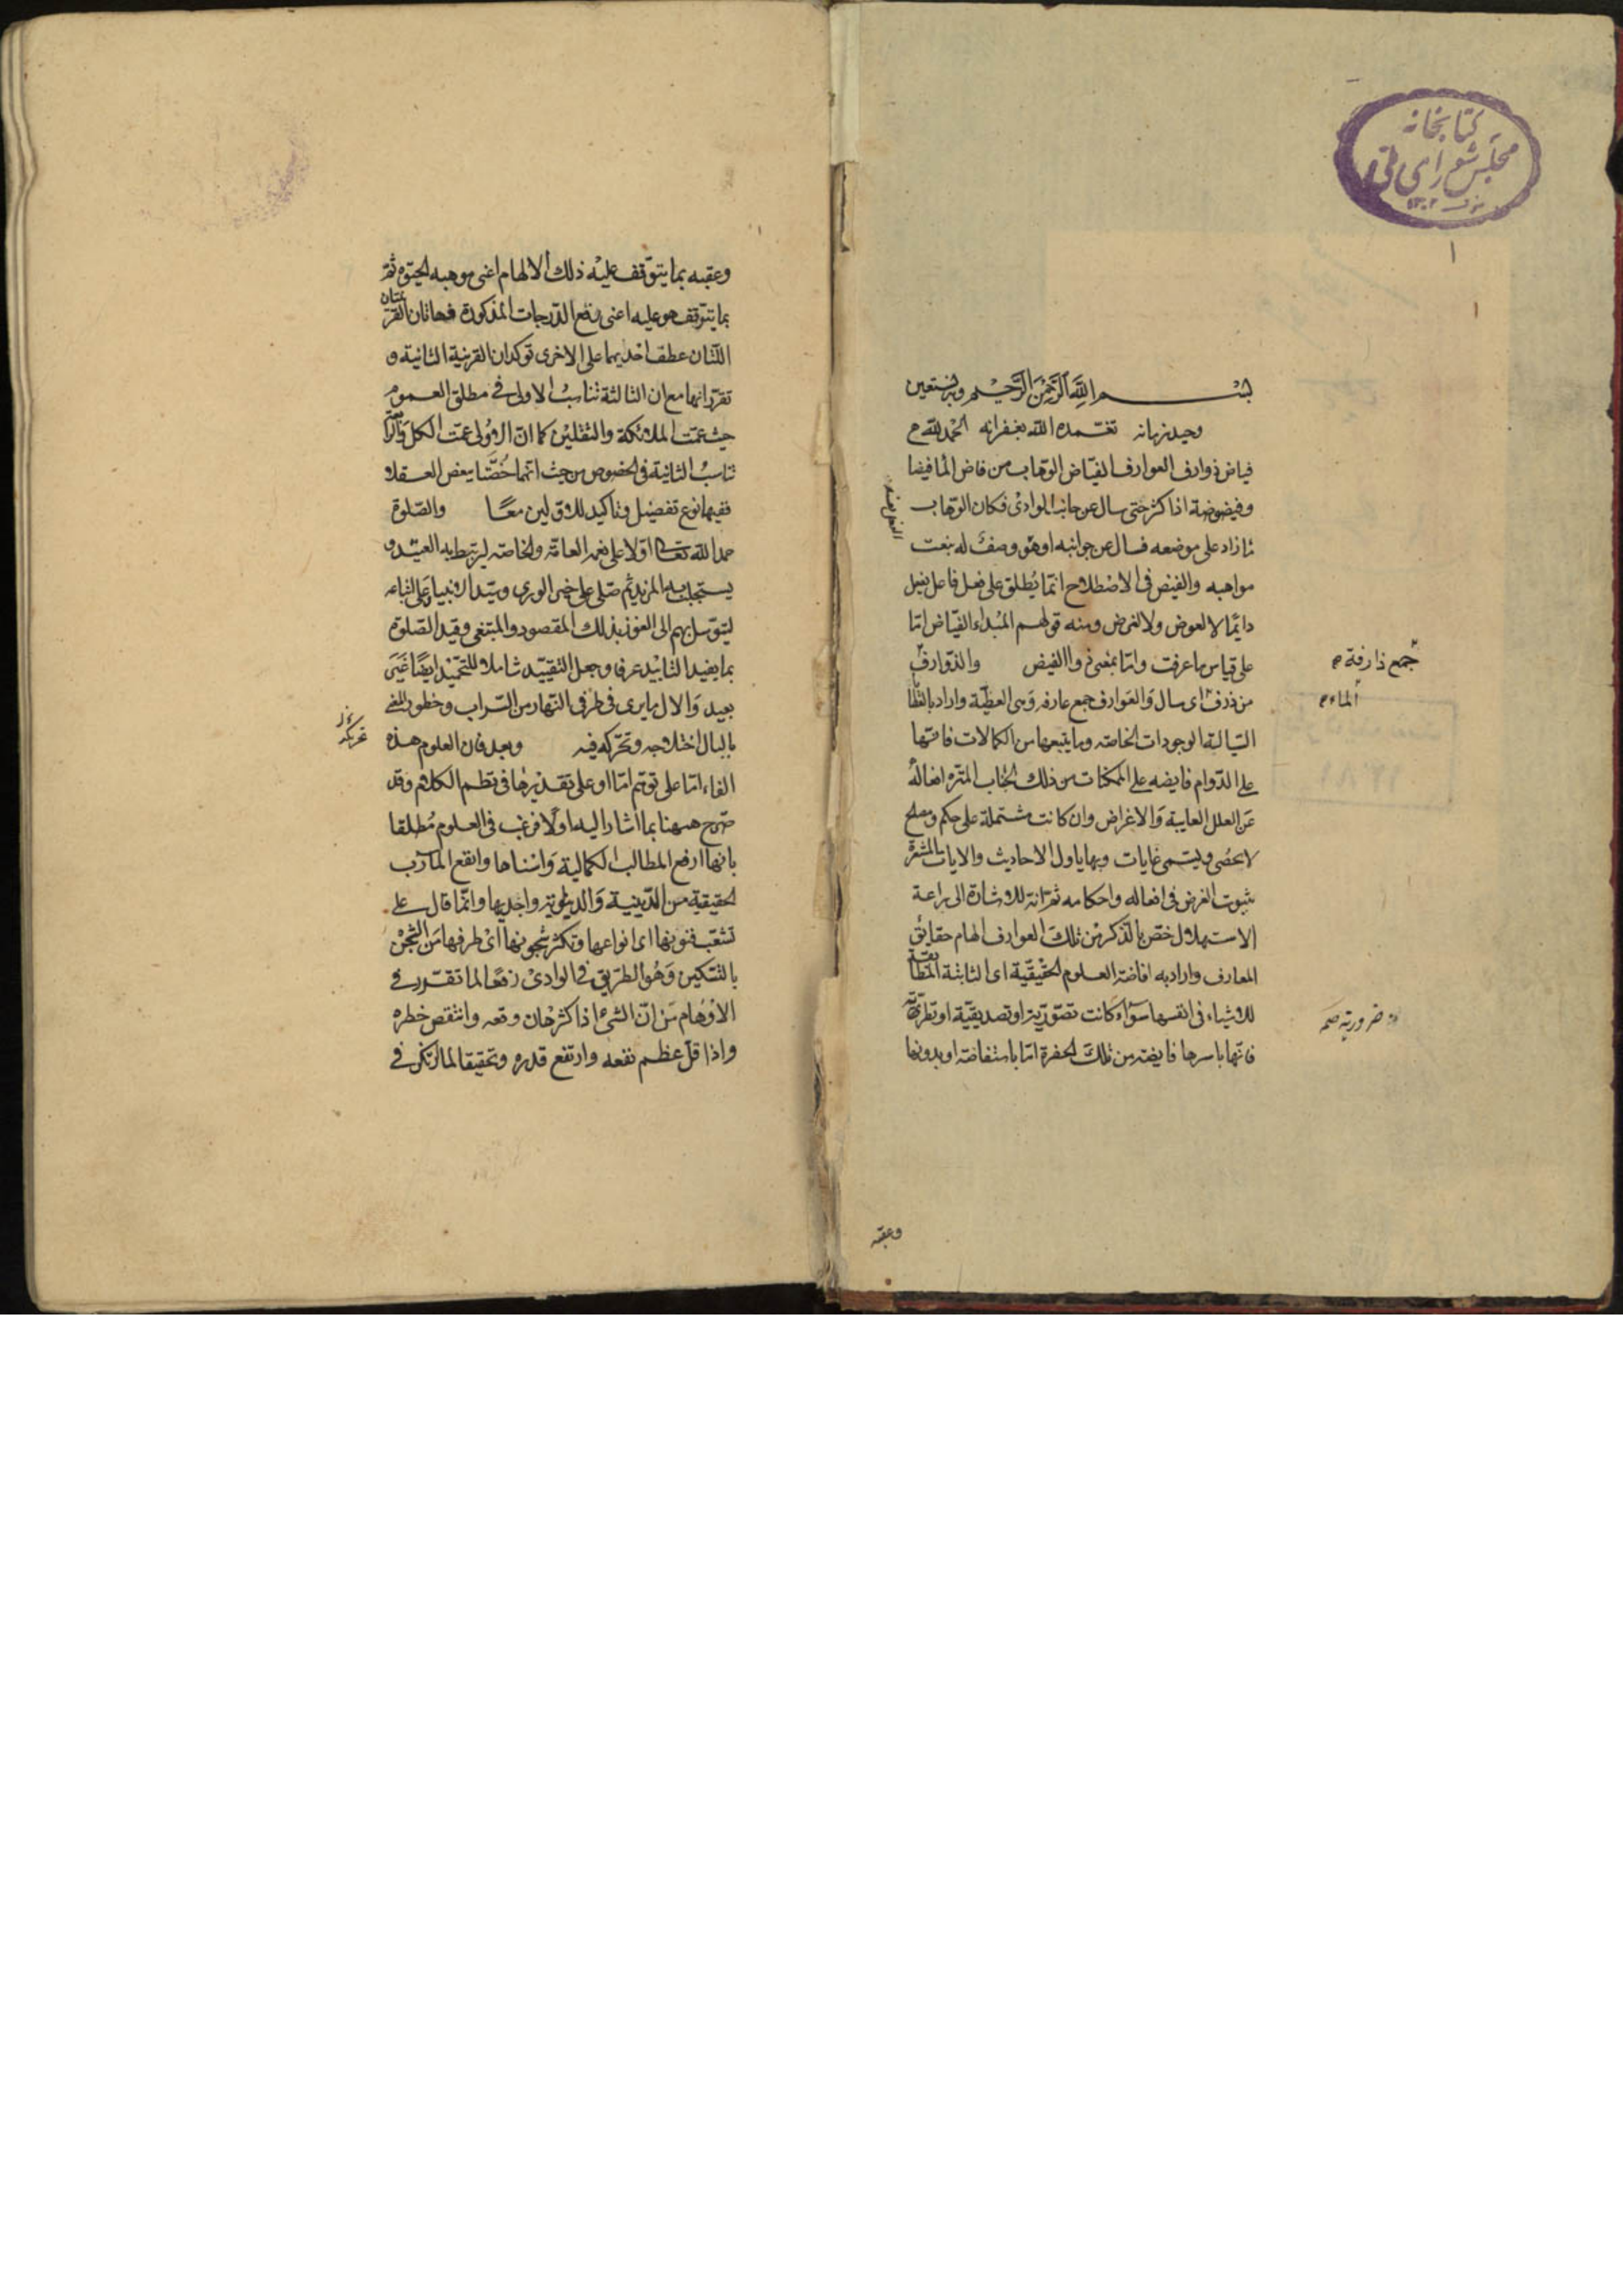 كتابخانه
مجلس شورای ملی
١
بسم الله الرحمن الرحيم وبه نستعين
وحيد زمانه تغمده الله بغفرانه الحمد لله
فياض ذوارف العوارف الفياض الوهاب من فاض الماء فيضا
وفيضوضة اذا كثر حتى سال عن جانب الوادى فكان الوهاب
زاد على موضعه فسال عن جوانبه او هو وصف له بنعت
مواهبه والفيض فى الاصطلاح انما يطلق على فعل فاعل يفعل
دايما لا لعوض ولا لغرض ومنه قولهم المبداء الفياض اما
على قياس ما عرفت واما بمعنى ذو الفيض والذوارف
جمع ذارفة
من ذرف اى سال والعوارف جمع عارفه وهى العطية واراد بالعطايا
الماء
السيالة الوجودات الخاصه وما يتبعها من الكمالات فانها
على الدوام فايضه على الممكنات من ذلك الجناب المنزه افعاله
عن العلل الغايية والاغراض وان كانت مشتملة على حكم ومصلح
لا تحصى ويسمى غايات وبها ياول الاحاديث والايات المشعرة
بثبوت الغرض فى افعاله واحكامه ثم انه للاشارة الى براعة
الاستهلال خص بالذكر من تلك العوارف الهام حقايق
المعارف واراد به افاضة العلوم الحقيقية اى الثابتة المطابقة
للاشياء فى انفسها سواء كانت تصورية او تصديقية او نظرية
ضرورية صح
فانها باسرها فايضة من تلك الحضرة اما باستفاضة او بدونها
وعقبه
وعقبه بما يتوقف عليه ذلك الالهام اعنى موهبه الحيوة ثم
بما يتوقف هو عليه اعنى رفع الدرجات المذكورة فهاتان القرينتان
اللتان عطف احديهما على الاخرى توكدان القرينة الثانية و
تقررانها مع ان الثالثة تناسب الاولى فى مطلق العموم
حيث عمت الملائكة والثقلين كما ان الاولى عمت الكل والرابعة
تناسب الثانية فى الخصوص من حيث انهما خصتا ببعض العقلاء
ففيهما نوع تفضيل وتاكيد للاولين معا والصلوة
حمد الله تعالى اولا على نعمه العامة والخاصه ليرتبط به العتيد و
يستجلب به المزيد ثم صلى على خير الورى وسيد الانبياء وعلى اتباعه
ليتوسل بهم الى الفوز بذلك المقصود والمبتغى وقيد الصلوة
بما يفيد التابيد عرفا وجعل التقييد شاملا للتحميد ايضا غير
بعيد والال ما يرى فى طرفى النهار من السراب وخطور المعنى
بالبال اختلاجه وتحركه فيه وبعد فان العلوم هذه
الفاء اما على توهم اما او على تقديرها فى نظم الكلام وقد
صرح ههنا بما اشار اليه اولا فرغب فى العلوم مطلقا
بانها ارفع المطالب الكمالية واسناها وانفع المآرب
الحقيقية من الدينية والدنيوية واجديها وانما قال على
تشعب فنونها اى انواعها وتكثر شجونها اى طرفها من الشجن
بالتسكين وهو الطريق فى الوادى رفعا لما تقرر فى
الاوهام من ان الشئ اذا كثر هان وقعه وانتقص خطره
واذا قل عظم نفعه وارتفع قدره وتحقيقا لما ارتكز فى